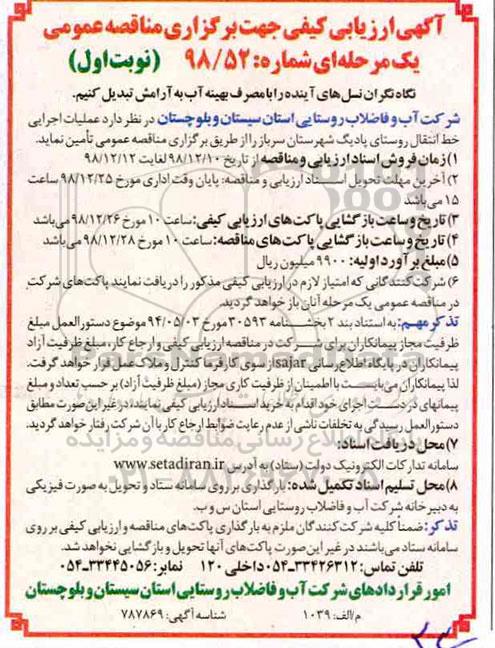 آگهی ارزیابی کیفی جهت برگزاری مناقصه عمومی
یک مرحله‌ای شماره: ۹۸/۵۲ (نوبت اول)
نگاه نگران نسل‌های آینده را با مصرف بهینه آب به آرامش تبدیل کنیم.
شرکت آب و فاضلاب روستایی استان سیستان و بلوچستان در نظر دارد عملیات اجرایی
خط انتقال روستای پادیگ شهرستان سرباز را از طریق برگزاری مناقصه عمومی تأمین نماید.
۱) زمان فروش اسناد ارزیابی و مناقصه از تاریخ ۹۸/۱۲/۱۰ لغایت ۹۸/۱۲/۱۲
۲) آخرین مهلت تحویل اسناد ارزیابی و مناقصه: پایان وقت اداری مورخ ۹۸/۱۲/۲۵ ساعت
۱۵ می‌باشد
۳) تاریخ و ساعت بازگشایی پاکت‌های ارزیابی کیفی: ساعت ۱۰ مورخ ۹۸/۱۲/۲۶ می‌باشد
۴) تاریخ و ساعت بازگشایی پاکت‌های مناقصه: ساعت ۱۰ مورخ ۹۸/۱۲/۲۸ می‌باشد
۵) مبلغ برآورد اولیه: ۹۹۰۰ میلیون ریال
۶) شرکت‌کنندگانی که امتیاز لازم در ارزیابی کیفی مذکور را دریافت نمایند پاکت‌های شرکت
در مناقصه عمومی یک مرحله آنان باز خواهد گردید.
تذکر مهم: به استناد بند ۲ بخشنامه ۳۰۵۹۳ مورخ ۹۴/۰۵/۰۳ موضوع دستورالعمل مبلغ
ظرفیت مجاز پیمانکاران برای شرکت در مناقصه ارزیابی کیفی و ارجاع کار، مبلغ ظرفیت آزاد
پیمانکاران در پایگاه اطلاع رسانی sajar از سوی کارفرما کنترل و ملاک عمل قرار خواهد گرفت.
لذا پیمانکاران می‌بایست با اطمینان از ظرفیت کاری مجاز (مبلغ ظرفیت آزاد) بر حسب تعداد و مبلغ
پیمانهای در دست اجرای خود اقدام به خرید اسناد ارزیابی کیفی نمایند، در غیر این صورت مطابق
دستورالعمل رسیدگی به تخلفات ناشی از عدم رعایت ضوابط ارجاع کار با آن شرکت رفتار خواهد گردید.
۷) محل دریافت اسناد:
سامانه تدارکات الکترونیک دولت (ستاد) به آدرس www.setadiran.ir
۸) محل تسلیم اسناد تکمیل شده: بارگذاری بر روی سامانه ستاد و تحویل به صورت فیزیکی
به دبیرخانه شرکت آب و فاضلاب روستایی استان س و ب.
تذکر: ضمناً کلیه شرکت کنندگان ملزم به بارگذاری پاکت‌های مناقصه و ارزیابی کیفی بر روی
سامانه ستاد می‌باشند در غیر این صورت پاکت‌های آنها تحویل و بازگشایی نخواهد شد.
تلفن تماس: ۳۳۴۲۶۳۱۲-۰۵۴ داخلی ۱۲۰ نمابر: ۳۳۴۴۵۰۵۶-۰۵۴
امور قراردادهای شرکت آب و فاضلاب روستایی استان سیستان و بلوچستان
م/الف: ۱۰۳۹ شناسه آگهی: ۷۸۷۸۶۹